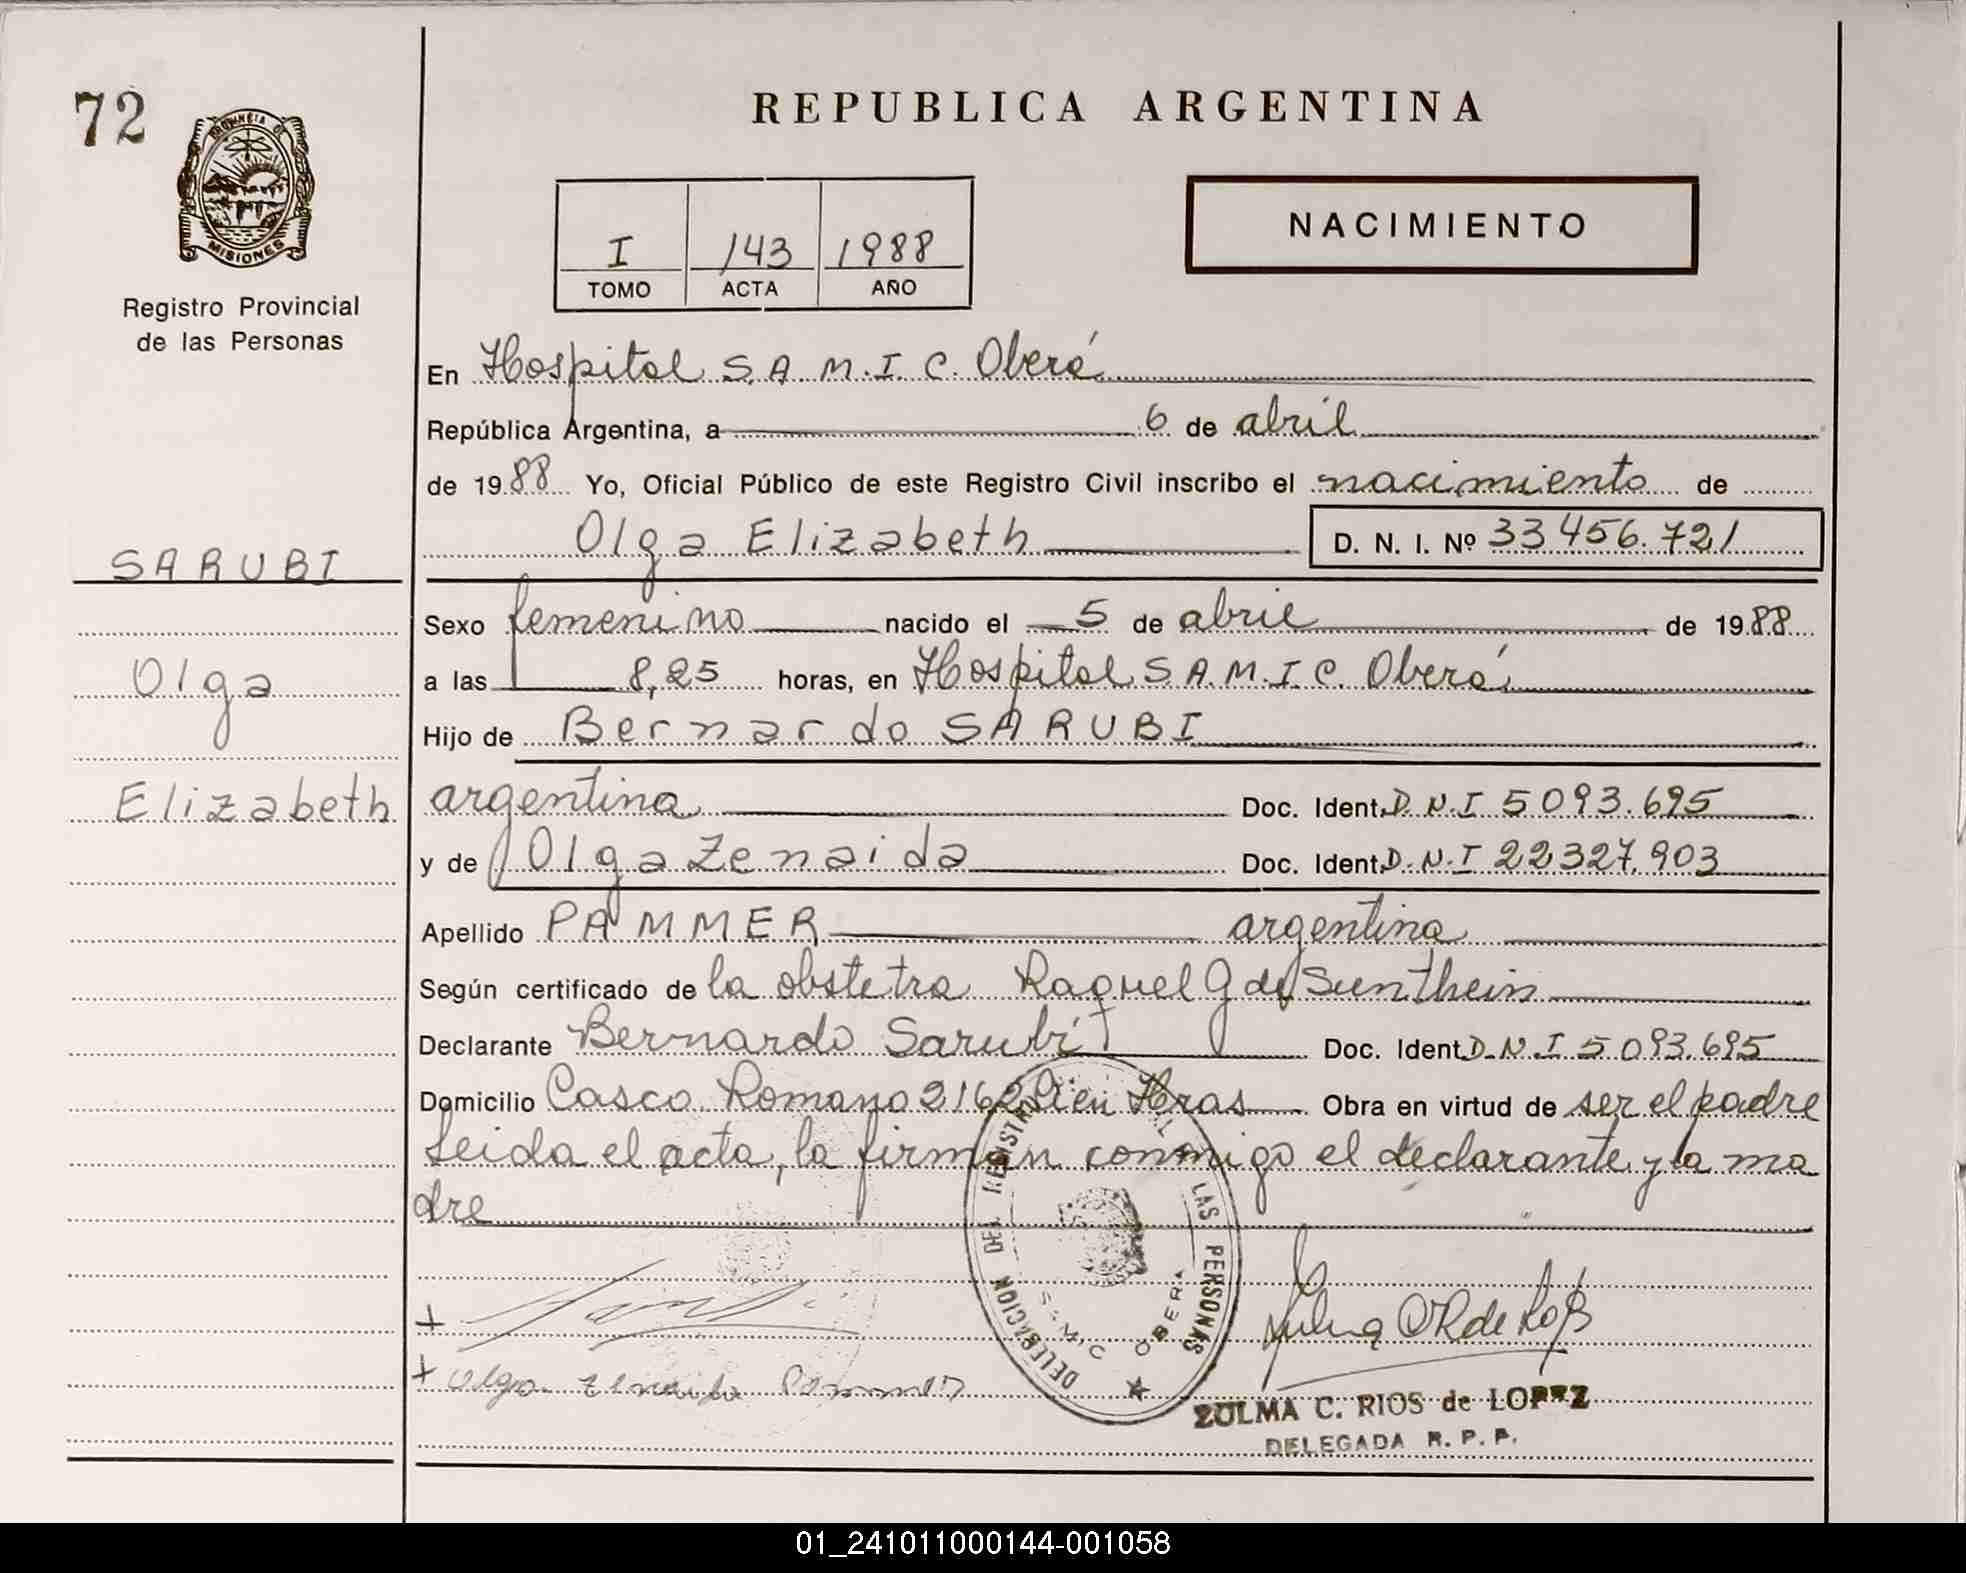 72
REPUBLICA ARGENTINA
PROVINCIA DE
MISIONES
Registro Provincial
de las Personas
NACIMIENTO
I 143 1988
TOMO ACTA AÑO
En Hospital S.A.M.I.C. Oberá
República Argentina, a 6 de abril
de 1988 Yo, Oficial Público de este Registro Civil inscribo el nacimiento de
Olga Elizabeth D. N. I. Nº 33456.721
SARUBI
Sexo femenino nacido el 5 de abril de 1988
Olga
a las 8,25 horas, en Hospital S.A.M.I.C. Oberá
Hijo de Bernardo SARUBI
Elizabeth
argentina Doc. Ident. D.N.I 5093.695
y de Olga Zenaida Doc. Ident. D.N.I 22327.903
Apellido PAMMER argentina
Según certificado de la obstetra Raquel G de
Declarante Bernardo Sarubi Doc. Ident. D.N.I 5093.695
Domicilio Casco Romano 2162 Obra en virtud de ser el padre
Leida el acta, la firman conmigo el declarante y la ma
dre
DELEGACION DEL REGISTRO LAS PERSONAS
S.A.M.I.C OBERA
+
+ Olga Zenaida Pammer
ZULMA C. RIOS de LOPEZ
DELEGADA R. P. P.
01_241011000144-001058